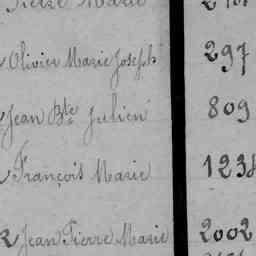 Pierre Marie
Olivier Marie Joseph 297
Jean Bte Julien 809
François Marie 1238
Jean Pierre Marie 2002